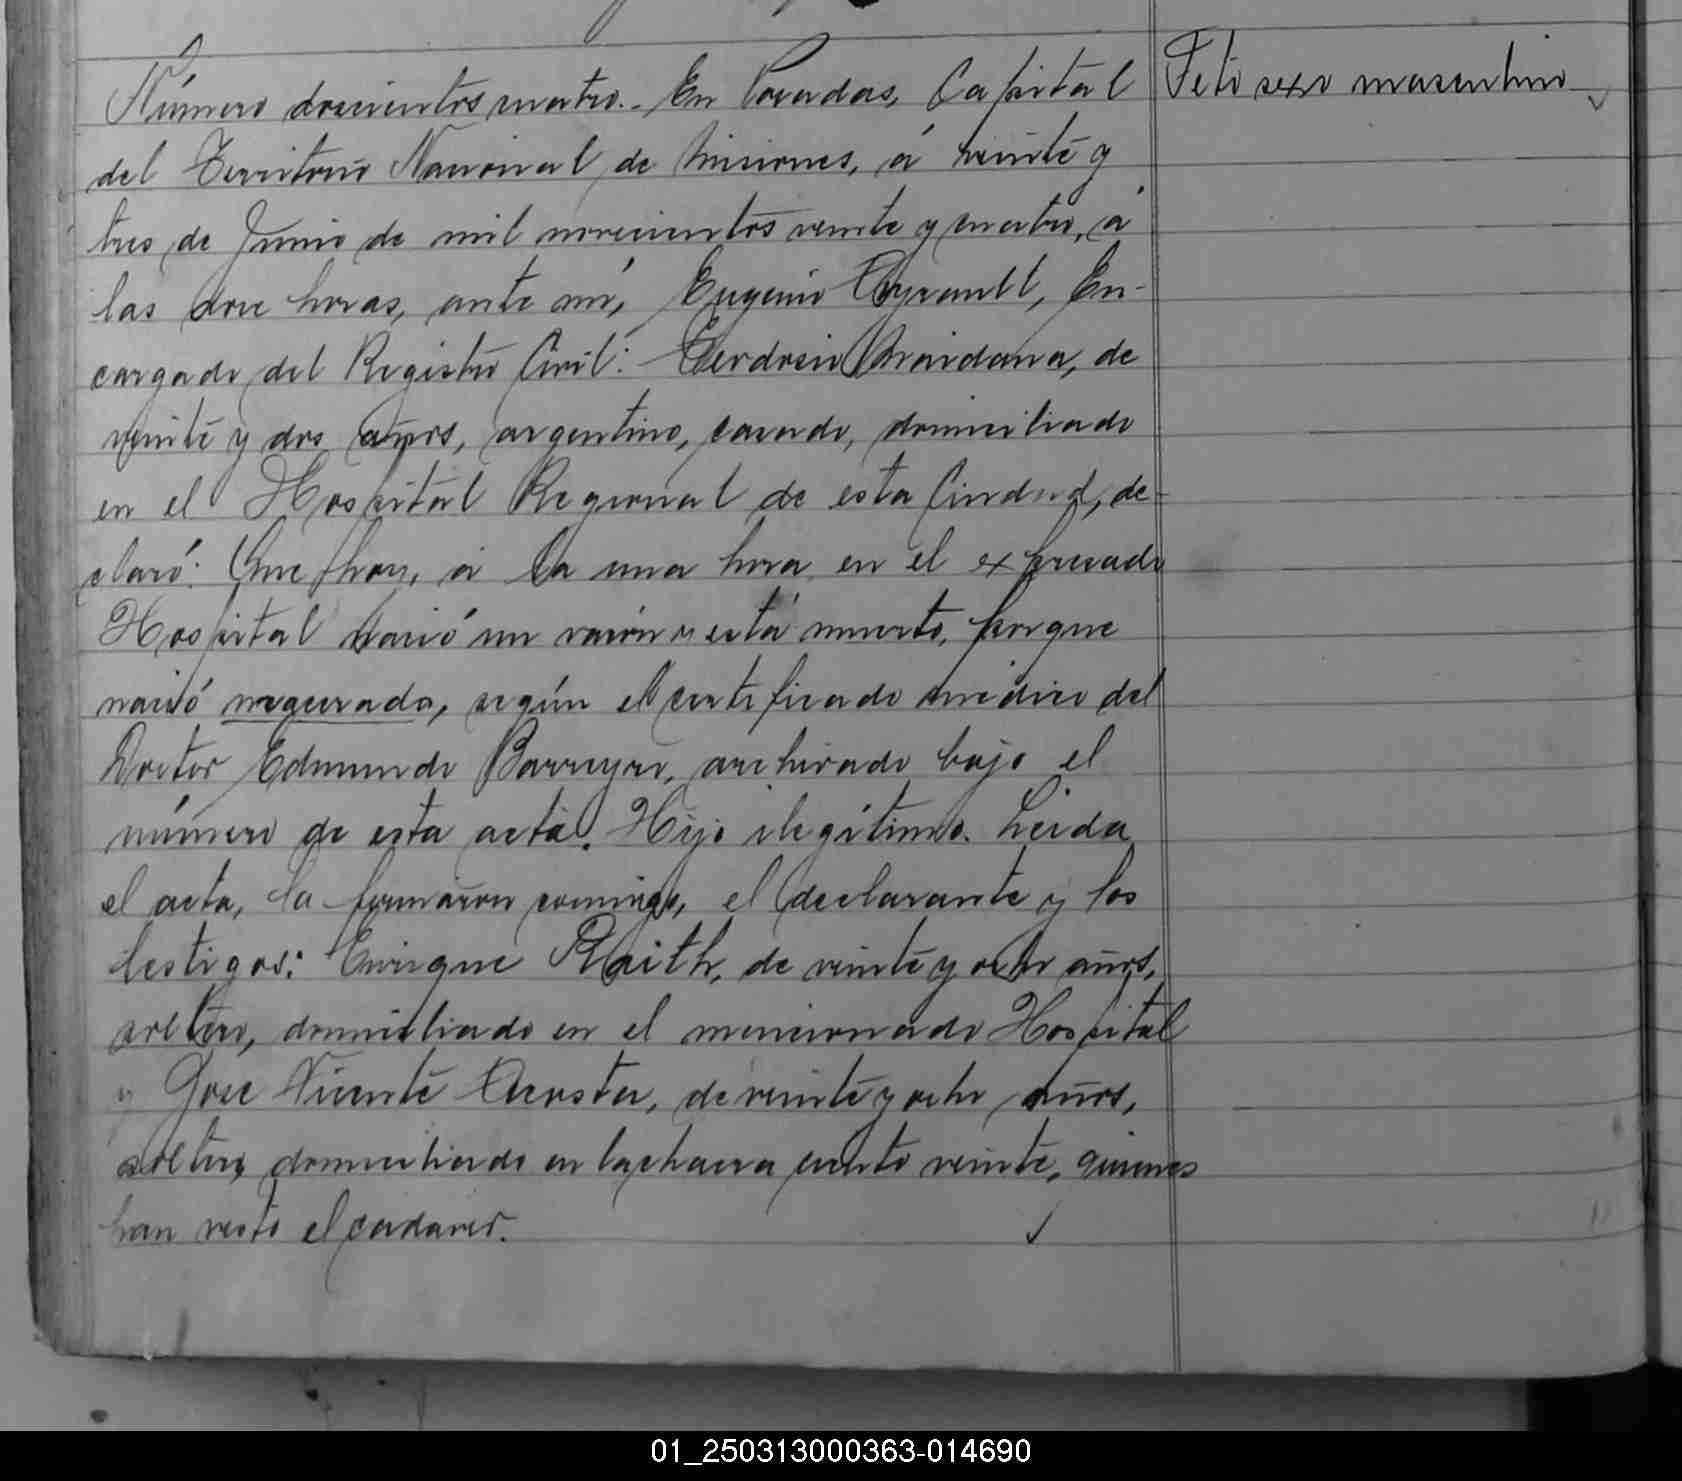 Número doscientos cuatro.- En Posadas, Capital
del Territorio Nacional de Misiones, á veinte y
tres de Junio de mil novecientos veinte y cuatro, á
las doce horas, ante mí, Eugenio Ayrault, En-
cargado del Registro Civil:- Maidana, de
veinte y dos años, argentino, casado, domiciliado
en el Hospital Regional de esta Ciudad, de-
claró: Que hoy, á la una hora en el expresado
Hospital nació un varón y está muerto, porque
nació, según el certificado médico del
Doctor Edmundo Barreyro, archivado bajo el
número de esta acta. Hijo ilegítimo. Leida
el acta, la firmaron conmigo, el declarante y los
testigos: Enrique Raith, de veinte y ocho años,
soltero, domiciliado en el mencionado Hospital
y José Vicente Acosta, de veinte y ocho años,
soltero, domiciliado en la chacra ciento veinte, quienes
han visto el cadaver.
Feto sexo masculino
01_250313000363-014690